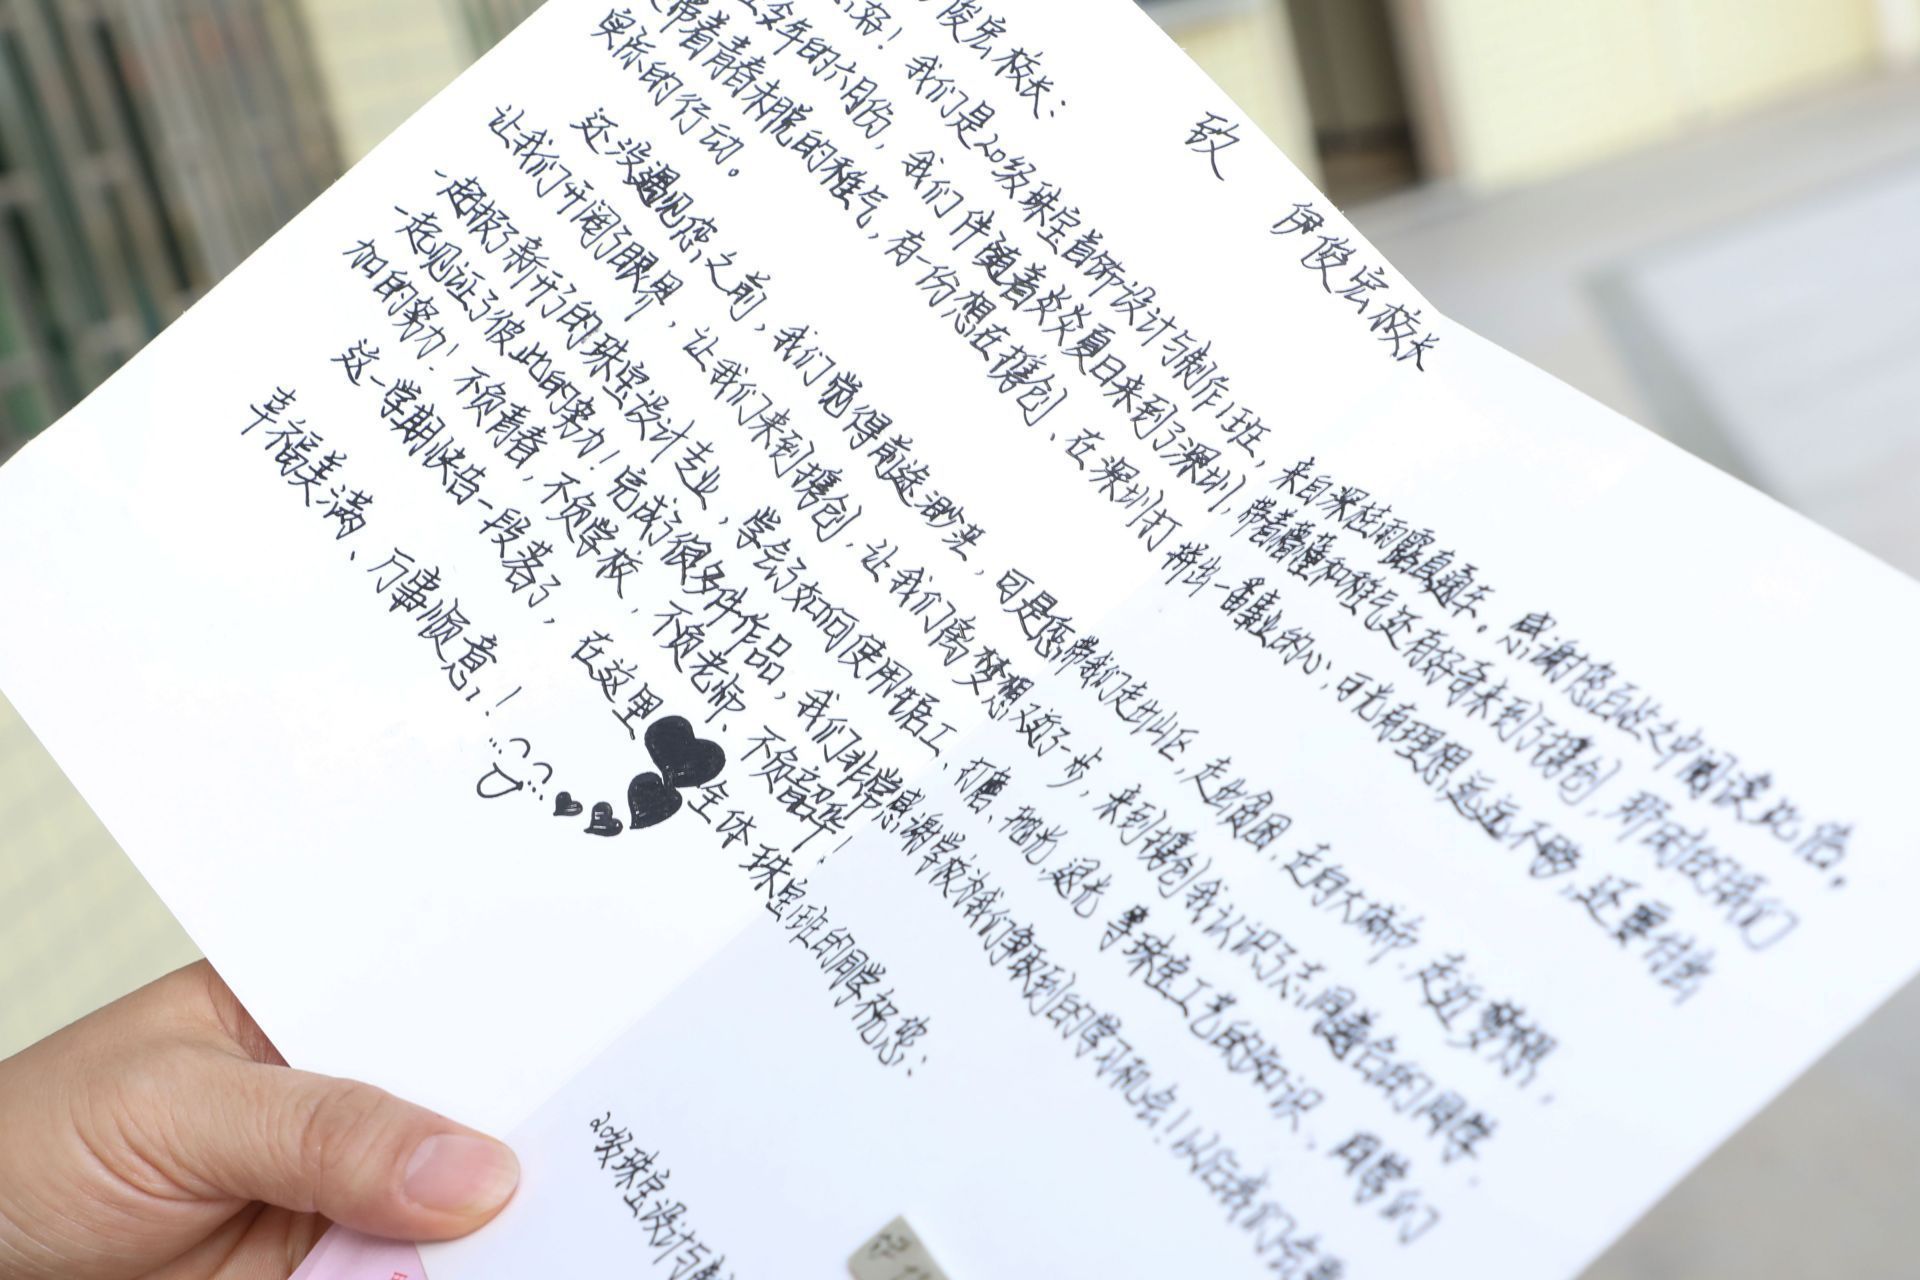 致 伊俊宏校长
俊宏校长：
好！我们是20级珠宝首饰设计与制作1班，来自深桂雨露直通车。感谢您百忙之中阅读此信，
今年的六月份，我们伴随着炎炎夏日来到了深圳，带着憧憬和稚气还有好奇来到了携创，那时候的我们
带着青春未脱的稚气，有一份想在携创、在深圳打拼出一番事业的心，可光有理想远远不够，还要付出
实际的行动。
还没遇见您之前，我们觉得前途渺茫，可是您带我们走出山区，走出贫困，走向大城市，走近梦想，
让我们开阔了眼界，让我们来到携创，让我们离梦想又近了一步，来到携创我认识了志同道合的同学，
一起报了新开的珠宝设计专业，学会了如何使用锯工、打磨、抛光、退光等珠宝工艺的知识，同学们
一起见证了彼此的努力！完成了很多件作品，我们非常感谢学校为我们争取到的学习机会！以后我们会更
加的努力！不负青春，不负学校，不负老师、不负韶华！
这一学期快告一段落了，在这里全体珠宝1班的同学祝您：
幸福美满、万事顺意！
20级珠宝设计与制